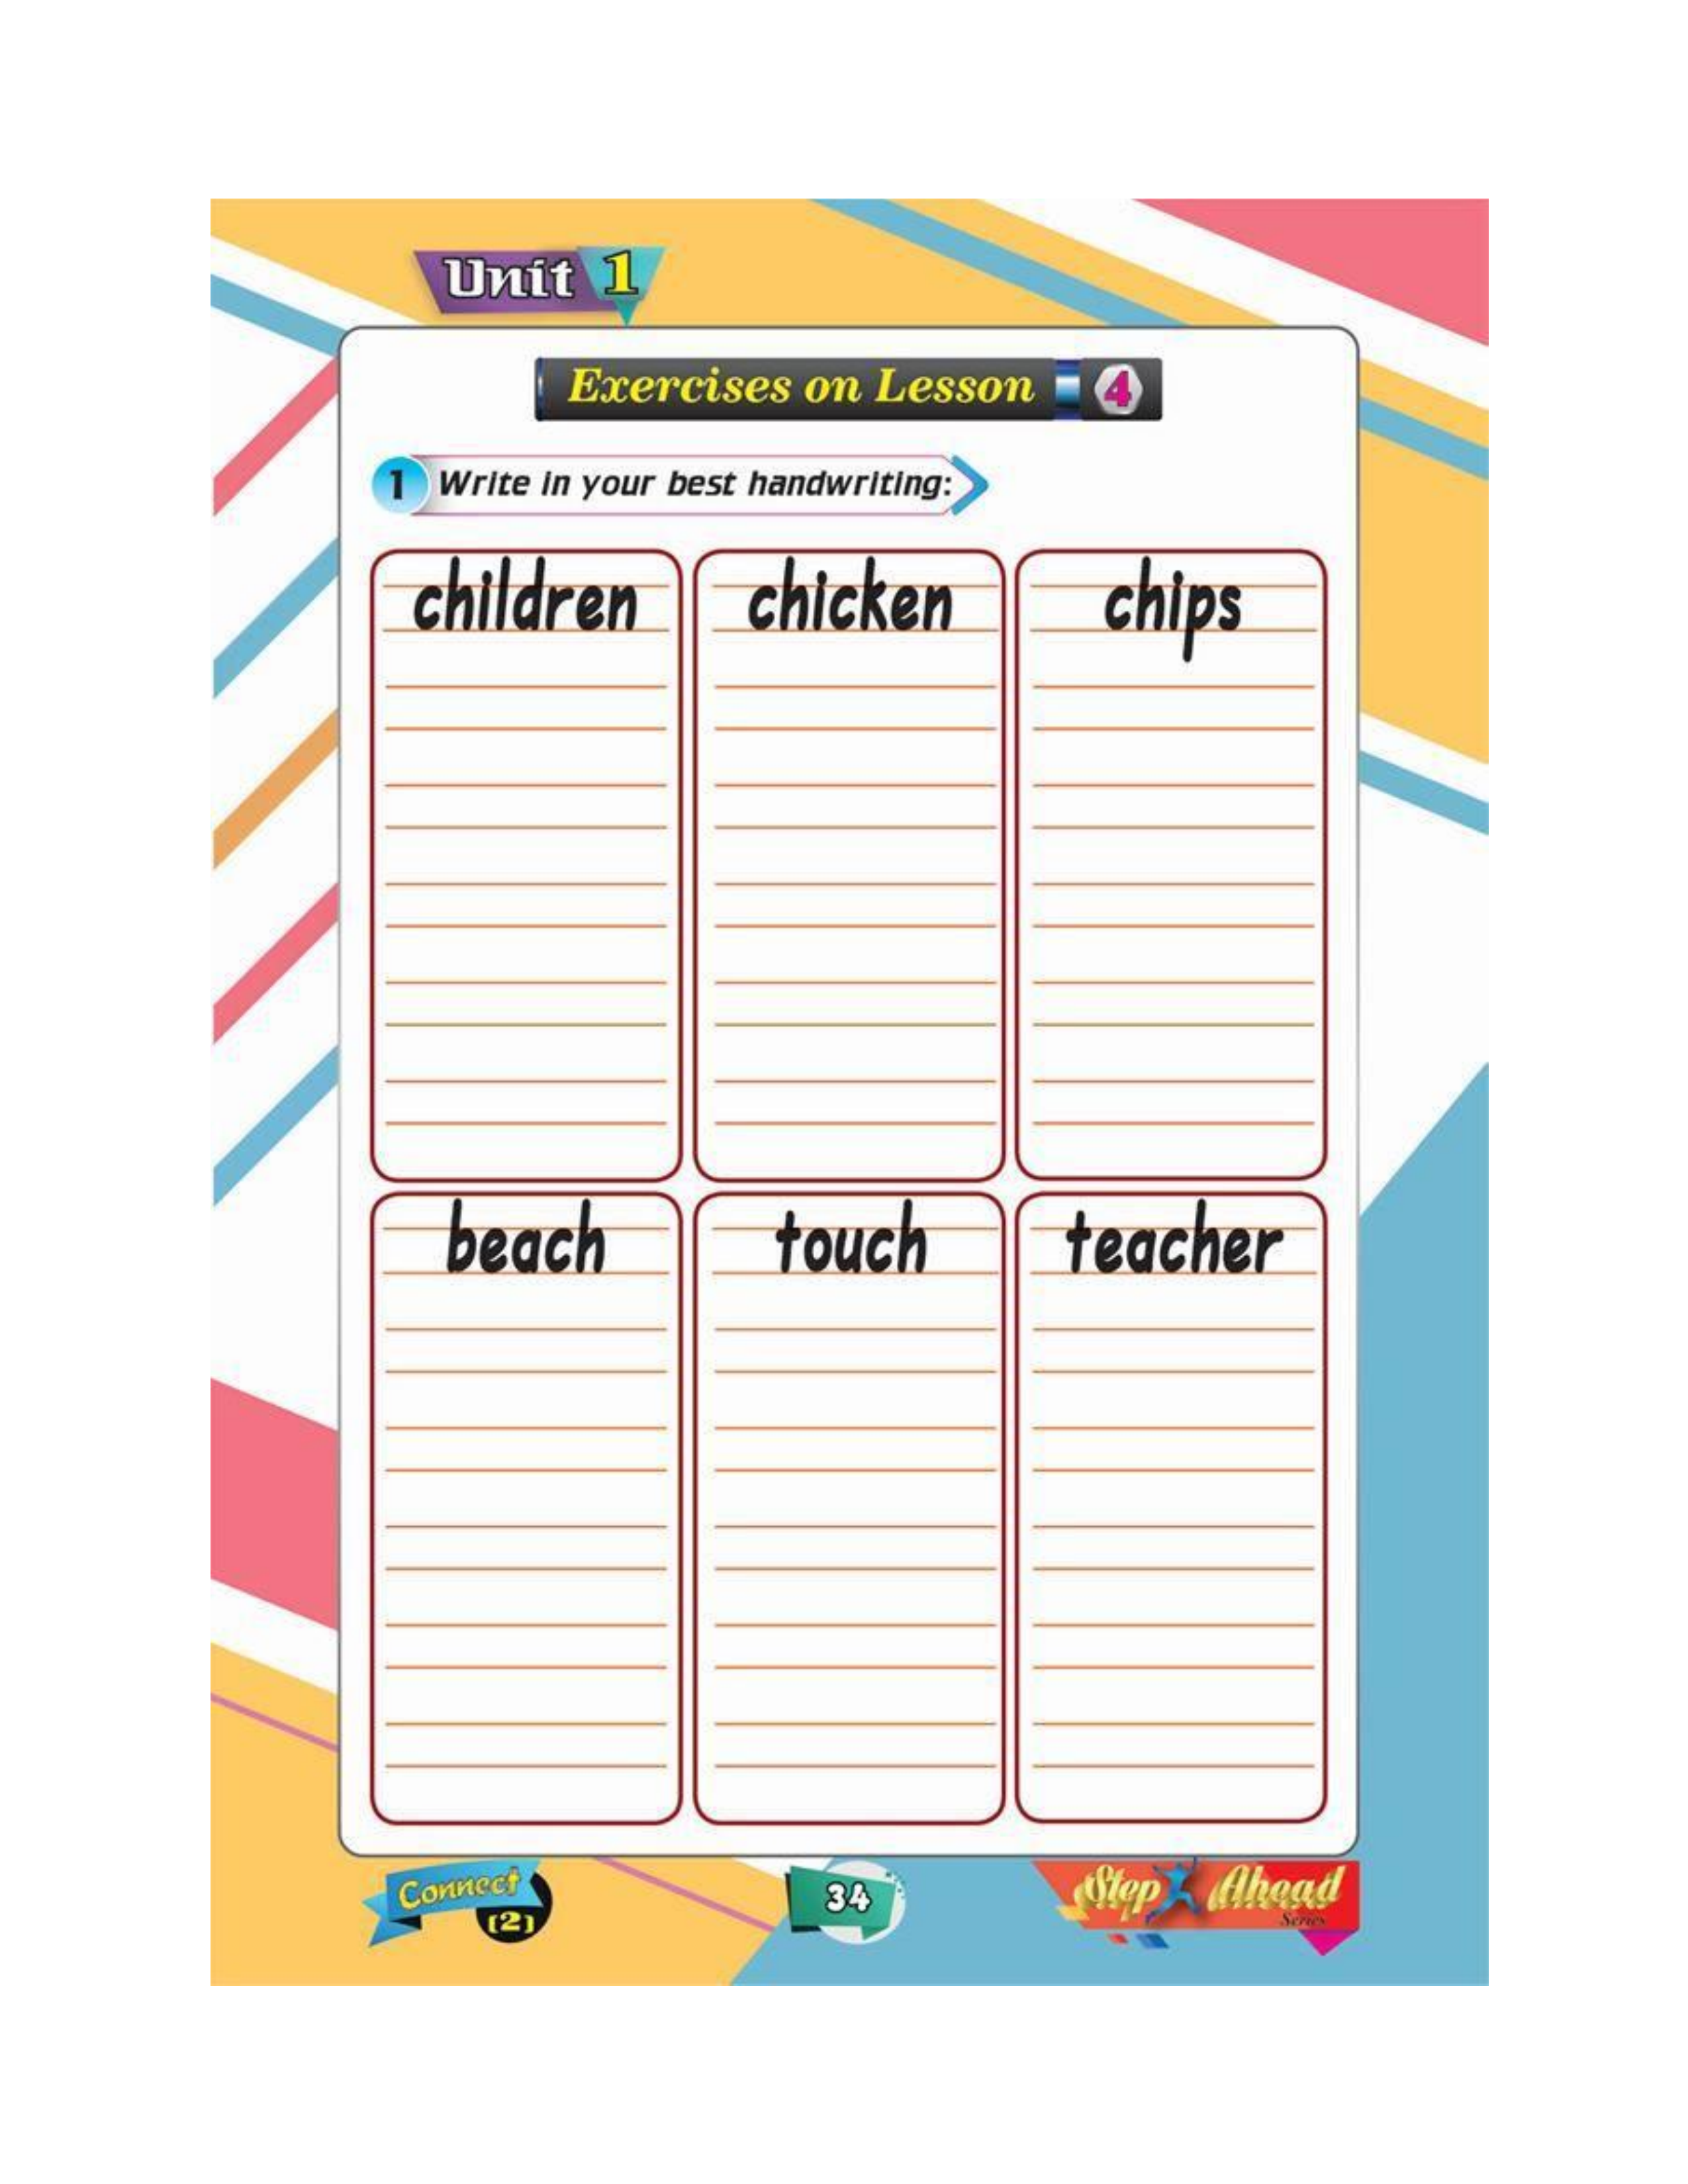 Unit 1
Exercises on Lesson 4
1 Write in your best handwriting:
children chicken chips
beach touch teacher
Connect
(2)
34
Step Ahead
Series